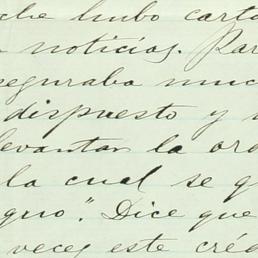 che hubo carta
noticias. Par
seguraba muc
dispuesto y
levantar la ord
la cual se q
gno". Dice que
veces este créd